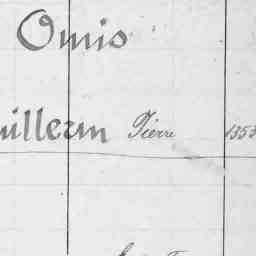 Omis
uillerm Pierre 1353